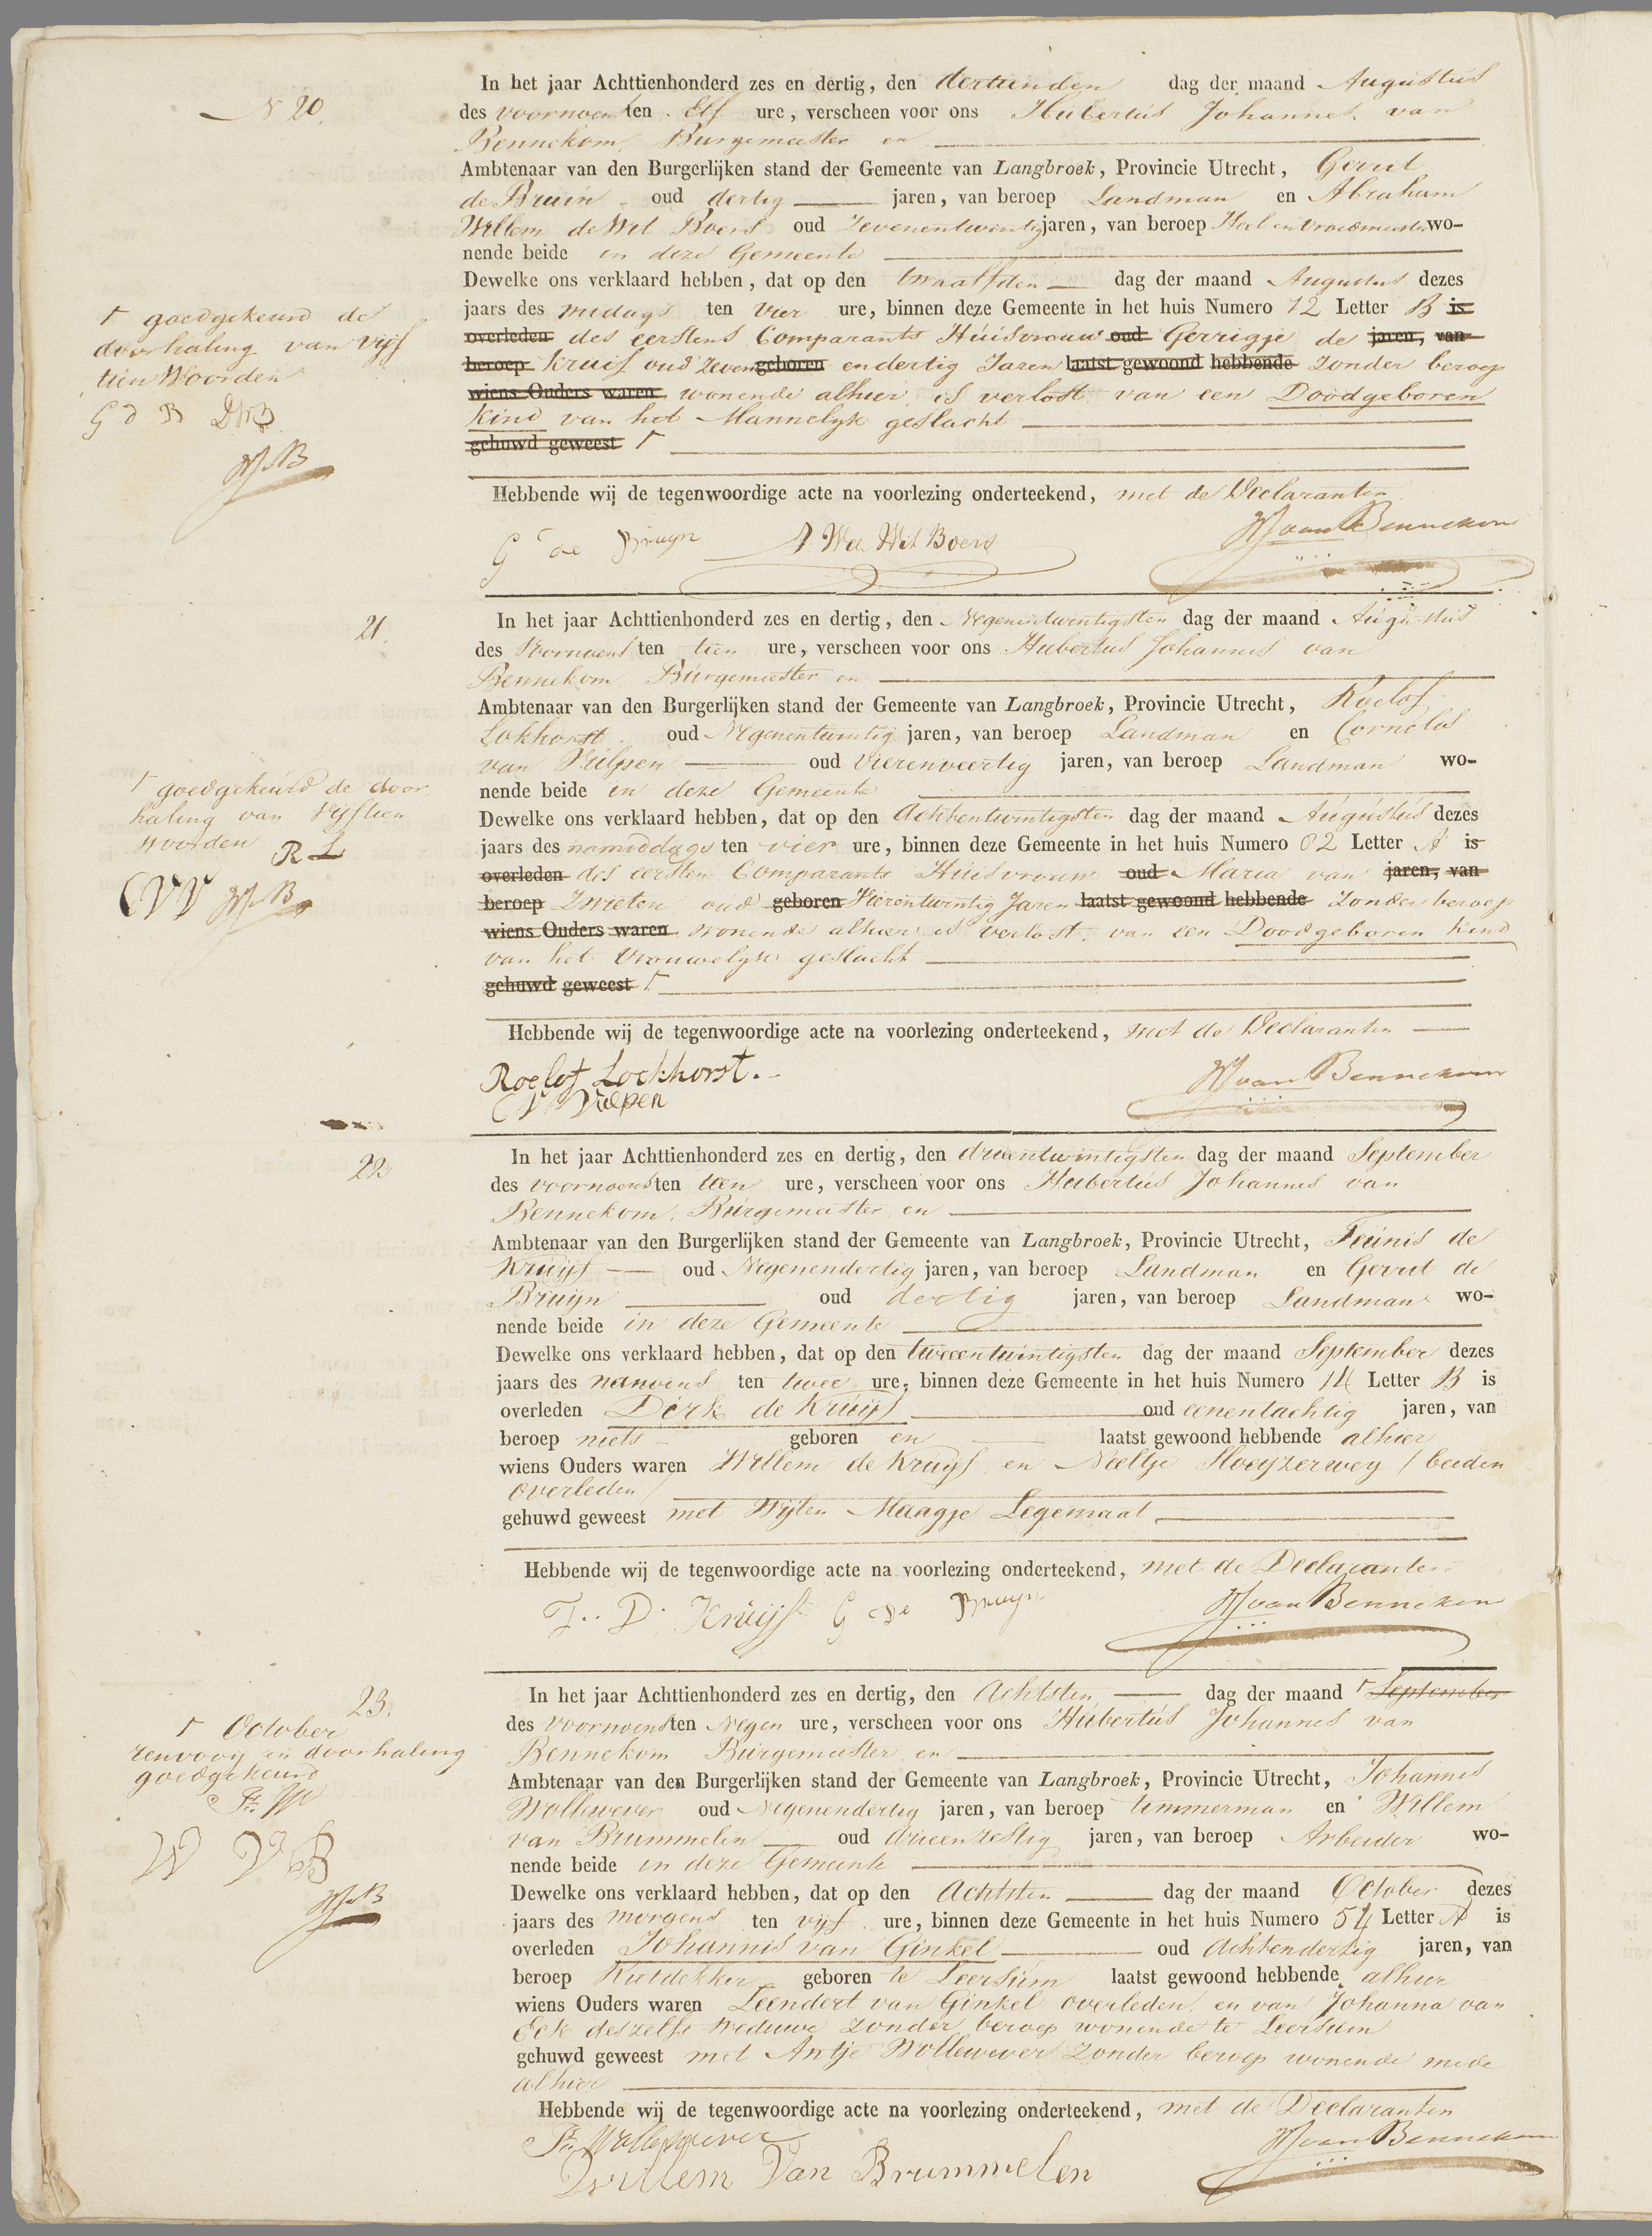 N 20.
In het jaar Achttienhonderd zes en dertig, den dertienden dag der maand Augustus
des voornoens ten Elf ure, verscheen voor ons Hubertus Johannes van
Bennekom, Burgemeester en
Ambtenaar van den Burgerlijken stand der Gemeente van Langbroek, Provincie Utrecht, Gerrit
de Bruin oud dertig jaren, van beroep Landman en Abraham
Willem de Wit Boers oud Zevenentwintig jaren, van beroep Heel en Vroedmeester wo-
nende beide in deze Gemeente
Dewelke ons verklaard hebben, dat op den twaalfden dag der maand Augustus dezes
jaars des midags ten vier ure, binnen deze Gemeente in het huis Numero 12 Letter B is
overleden des eerstens Comparants Huisvrouw oud Gerrigje de jaren, van
beroep Kruif oud zeven geboren endertig Jaren laatst gewoond hebbende zonder beroep
wiens Ouders waren wonende alhier, is verlost van een Doodgeboren
Kind van het Mannelijk geslacht
gehuwd geweest
goedgekeurd de
doorhaling van vijf
tien Woorden
G d B DWB
HJvB
Hebbende wij de tegenwoordige acte na voorlezing onderteekend, met de Declaranten
G de Bruyn A W de Wit Boers HJ van Bennekom
21.
In het jaar Achttienhonderd zes en dertig, den Negenentwintigsten dag der maand Augustus
des Voornoens ten tien ure, verscheen voor ons Hubertus Johannes van
Bennekom, Burgemeester en
Ambtenaar van den Burgerlijken stand der Gemeente van Langbroek, Provincie Utrecht, Roelof
Lokhorst oud Negenentwintig jaren, van beroep Landman en Cornelis
van Vulpen oud vierenveertig jaren, van beroep Landman wo-
nende beide in deze Gemeente
Dewelke ons verklaard hebben, dat op den Achtentwintigsten dag der maand Augustus dezes
jaars des namiddags ten vier ure, binnen deze Gemeente in het huis Numero 82 Letter A is
overleden des eersten Comparants Huisvrouw oud Maria van jaren, van
beroep Zwieten oud geboren Vierentwintig Jaren laatst gewoond hebbende Zonder beroep
wiens Ouders waren wonende alhier is verlost van een Doodgeboren Kind
van het Vrouwelijk geslacht
gehuwd geweest
goedgekeurd de door
haling van Vijftien
woorden R L
CVV HJvB
Hebbende wij de tegenwoordige acte na voorlezing onderteekend, met de Declaranten
Roelof Lockhorst. HJ van Bennekom
C V Vulpen
22
In het jaar Achttienhonderd zes en dertig, den drieentwintigsten dag der maand September
des voornoens ten tien ure, verscheen voor ons Hubertus Johannes van
Bennekom, Burgemeester en
Ambtenaar van den Burgerlijken stand der Gemeente van Langbroek, Provincie Utrecht, Teunis de
Kruijf oud Negenendertig jaren, van beroep Landman en Gerrit de
Bruijn oud dertig jaren, van beroep Landman wo-
nende beide in deze Gemeente
Dewelke ons verklaard hebben, dat op den tweeentwintigsten dag der maand September dezes
jaars des nanoens ten twee ure, binnen deze Gemeente in het huis Numero 14 Letter B is
overleden Dirk de Kruijf oud eenentachtig jaren, van
beroep niets geboren en laatst gewoond hebbende alhier
wiens Ouders waren Willem de Kruijf en Neeltje Hoeijzerweij / beiden
overleden /
gehuwd geweest met Wijlen Maagje Legemaat
Hebbende wij de tegenwoordige acte na voorlezing onderteekend, met de Declaranten
T. D. Kruijf G de Bruyn HJ van Bennekom
23.
In het jaar Achttienhonderd zes en dertig, den Achtsten dag der maand September
des Voornoens ten Negen ure, verscheen voor ons Hubertus Johannes van
Bennekom Burgemeester en
Ambtenaar van den Burgerlijken stand der Gemeente van Langbroek, Provincie Utrecht, Johannes
Wollewever oud Negenendertig jaren, van beroep timmerman en Willem
van Brummelen oud drieenzestig jaren, van beroep Arbeider wo-
nende beide in deze Gemeente
Dewelke ons verklaard hebben, dat op den Achtsten dag der maand October dezes
jaars des morgens ten vijf ure, binnen deze Gemeente in het huis Numero 54 Letter A is
overleden Johannis van Ginkel oud Achtendertig jaren, van
beroep Rietdekker geboren te Leersum laatst gewoond hebbende alhier
wiens Ouders waren Leendert van Ginkel overleden, en van Johanna van
Eck deszelfs Weduwe zonder beroep wonende te Leersum
gehuwd geweest met Antje Wollewever zonder beroep wonende mede
alhier
October
renvooij en doorhaling
goedgekeurd
W V B
HJvB
Hebbende wij de tegenwoordige acte na voorlezing onderteekend, met de Declaranten
Wollewever HJ van Bennekom
Willem Van Brummelen